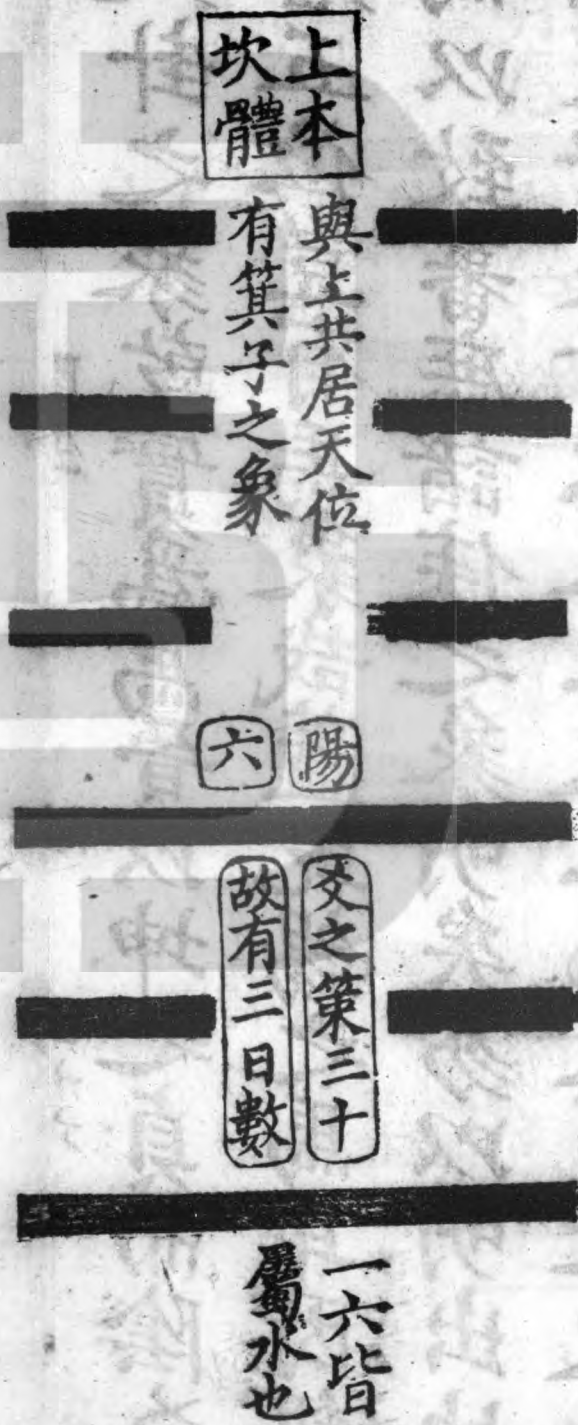 上本
坎體
與上共居天位
有箕子之象
陽
六
爻之策三十
故有三日數
一六皆
屬水也